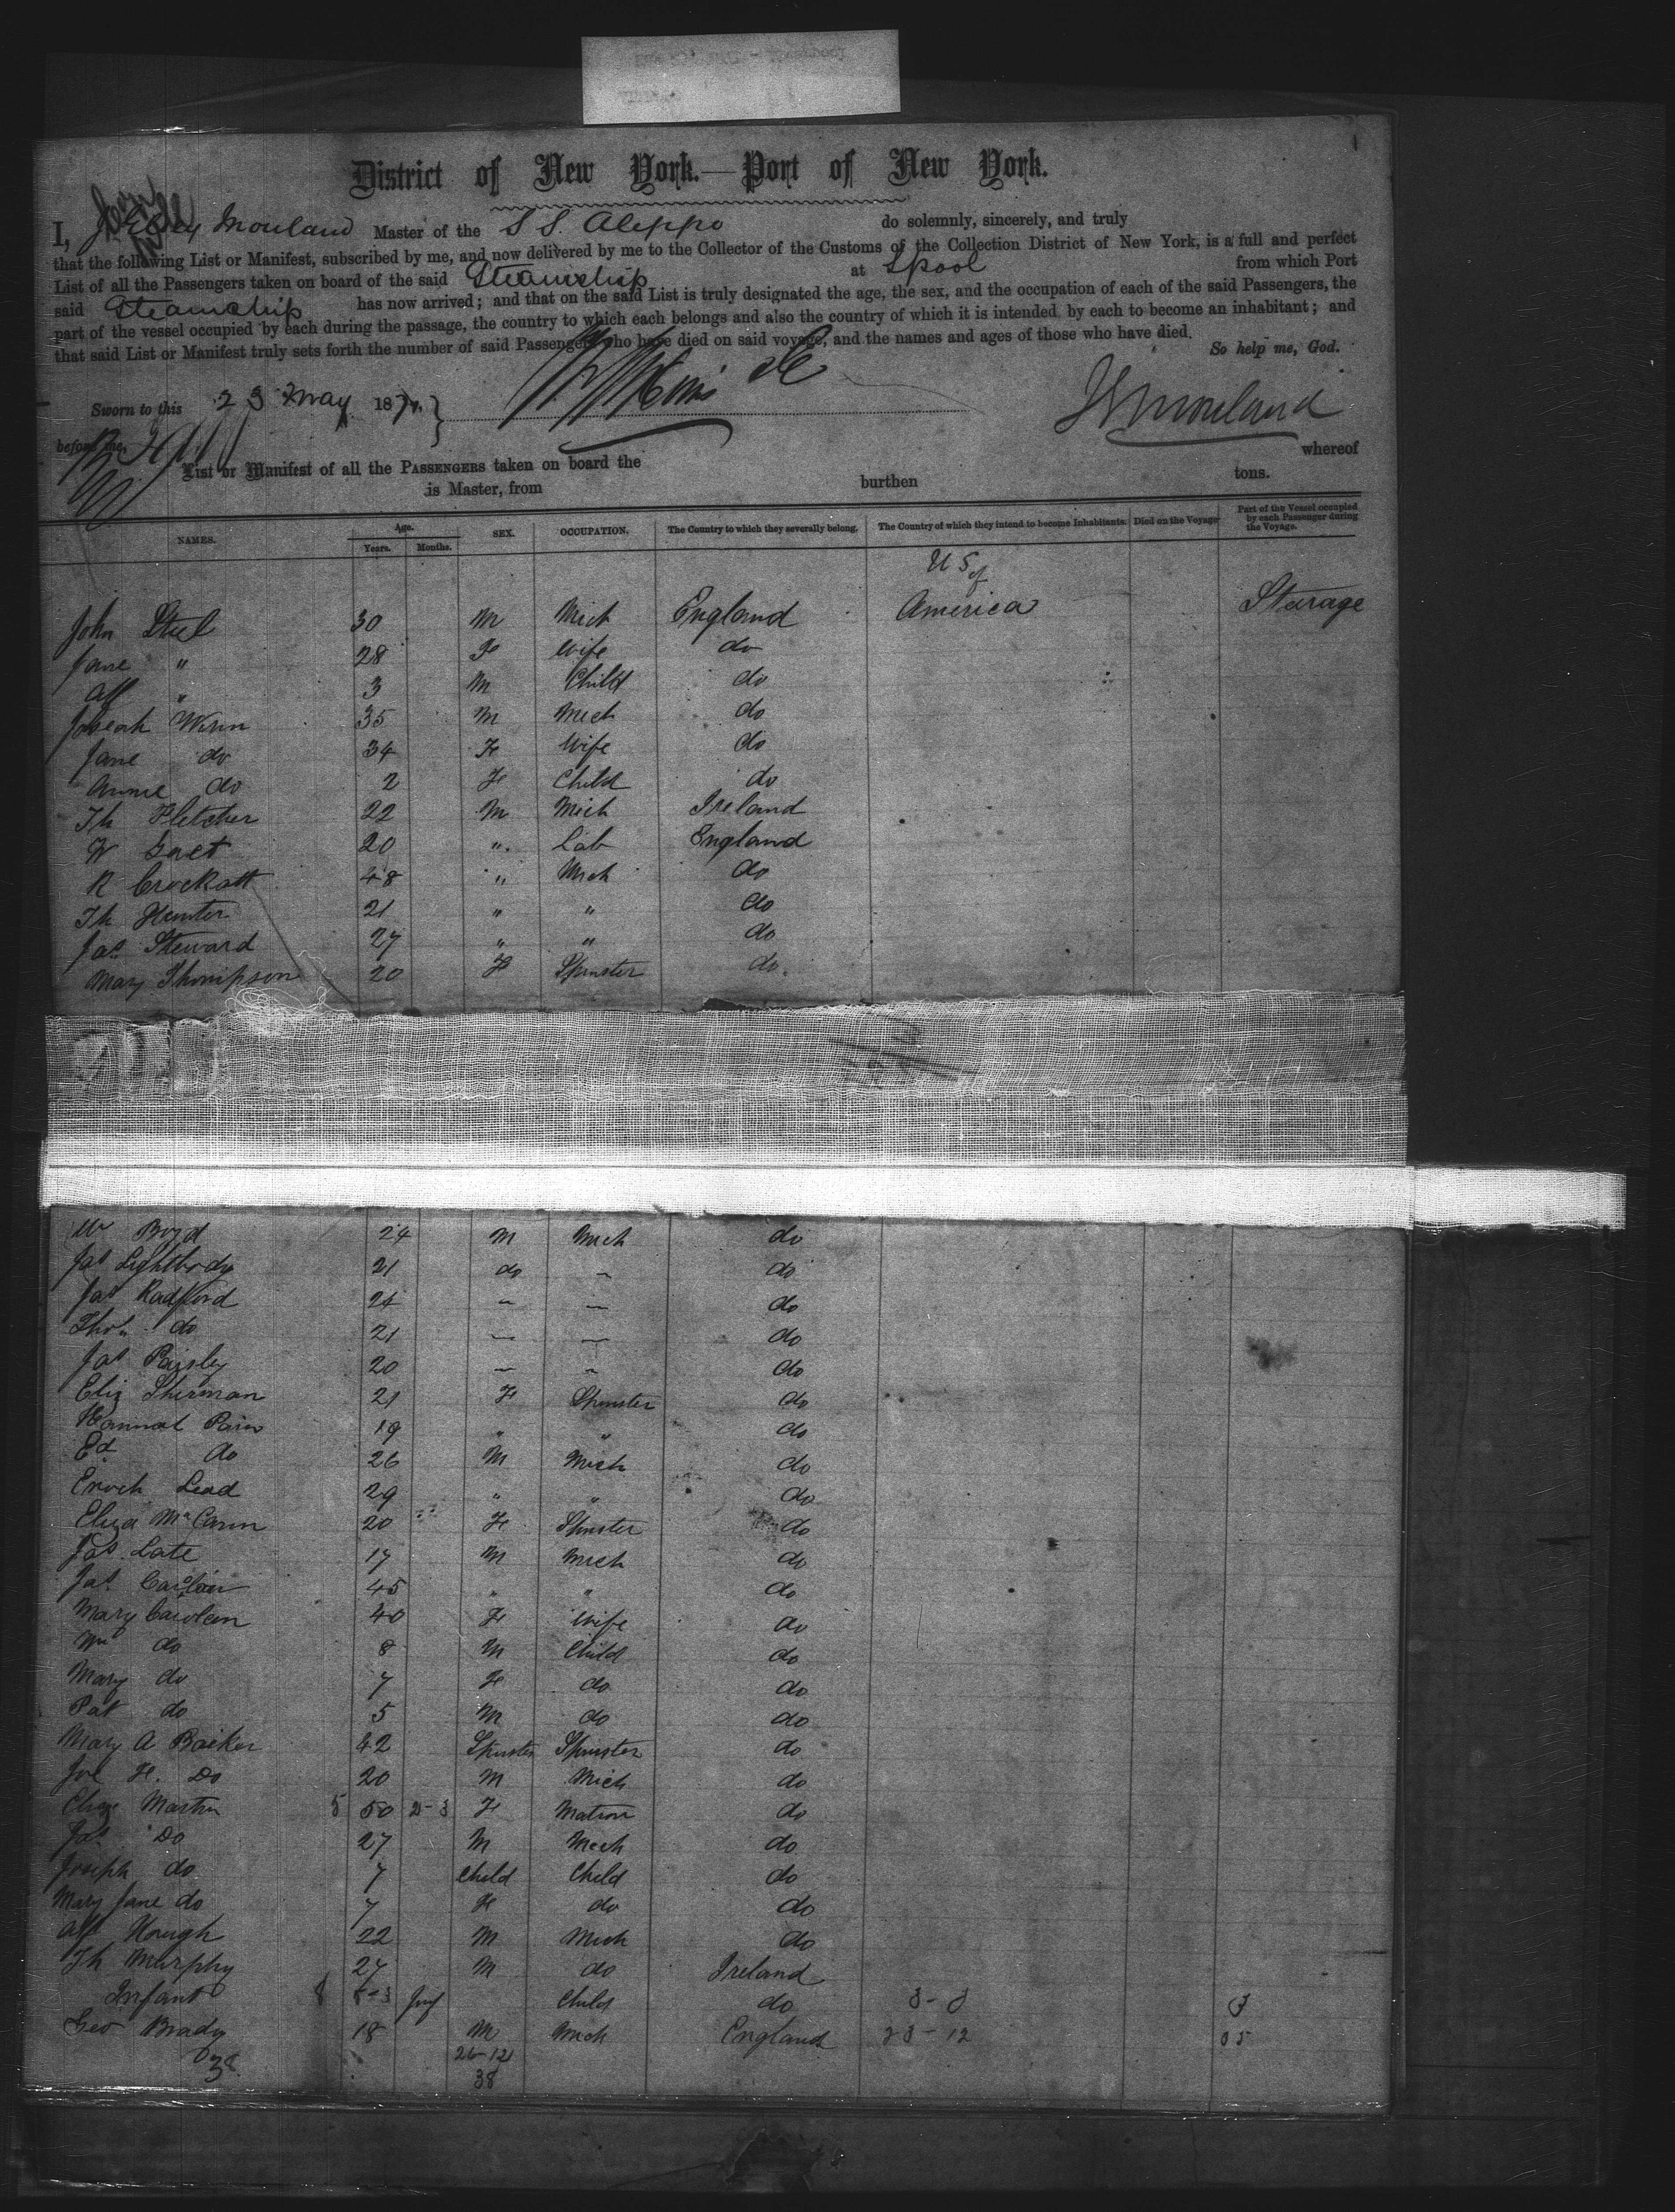 District of New York.—Port of New York.
I, Mouland Master of the S S. Aleppo do solemnly, sincerely, and truly
that the following List or Manifest, subscribed by me, and now delivered by me to the Collector of the Customs of the Collection District of New York, is a full and perfect
List of all the Passengers taken on board of the said Steamship at Lpool from which Port
said Steamship has now arrived; and that on the said List is truly designated the age, the sex, and the occupation of each of the said Passengers, the
part of the vessel occupied by each during the passage, the country to which each belongs and also the country of which it is intended by each to become an inhabitant; and
that said List or Manifest truly sets forth the number of said Passengers who have died on said voyage, and the names and ages of those who have died.
So help me, God.
Sworn to this 23 May 187
Mouland
before me,
whereof
List or Manifest of all the PASSENGERS taken on board the
is Master, from burthen tons.
NAMES. Age. Years. Months. SEX. OCCUPATION. The Country to which they severally belong. The Country of which they intend to become Inhabitants. Died on the Voyage Part of the Vessel occupied by each Passenger during the Voyage.
U S of
John Steel 30 M Mech England America Stearage
Jane " 28 F Wife do
Alf " 3 M Child do
35 M Mech do
Jane do 34 F Wife do
Annie do 2 F Child do
Th Fletcher 22 M Mech Ireland
W 20 " Lab England
R Crockatt 48 " Mech do
Th Hunter 21 " " do
Jas Steward 27 " " do
Mary Thompson 20 F Spinster do
Wm Boyd 24 M Mech do
Jas Lightbody 21 do do
Jas Radford 24 do
Thos do 21 do
Jas Paisley 20 do
Eliz Sherman 21 F Spinster do
19 " " do
Ed do 26 M Mech do
Enoch Lead 29 " " do
Eliza McCann 20 F Spinster do
Jas Late 17 M Mech do
Jas 45 " " do
Mary Carolan 40 F Wife do
Wm do 8 M Child do
Mary do 7 F do do
Pat do 5 M do do
Mary A Barker 42 Spinster Spinster do
Joe H. Do 20 M Mech do
Martin 5 50 F Matron do
Jas Do 27 M Mech do
Joseph do 7 Child Child do
Mary Jane do 7 F do do
Alf Hough 22 M Mech do
Th Murphy 27 M do Ireland
Infant Inf Child do
Geo Brady 18 M Mech England 23-12
38 26-12
38